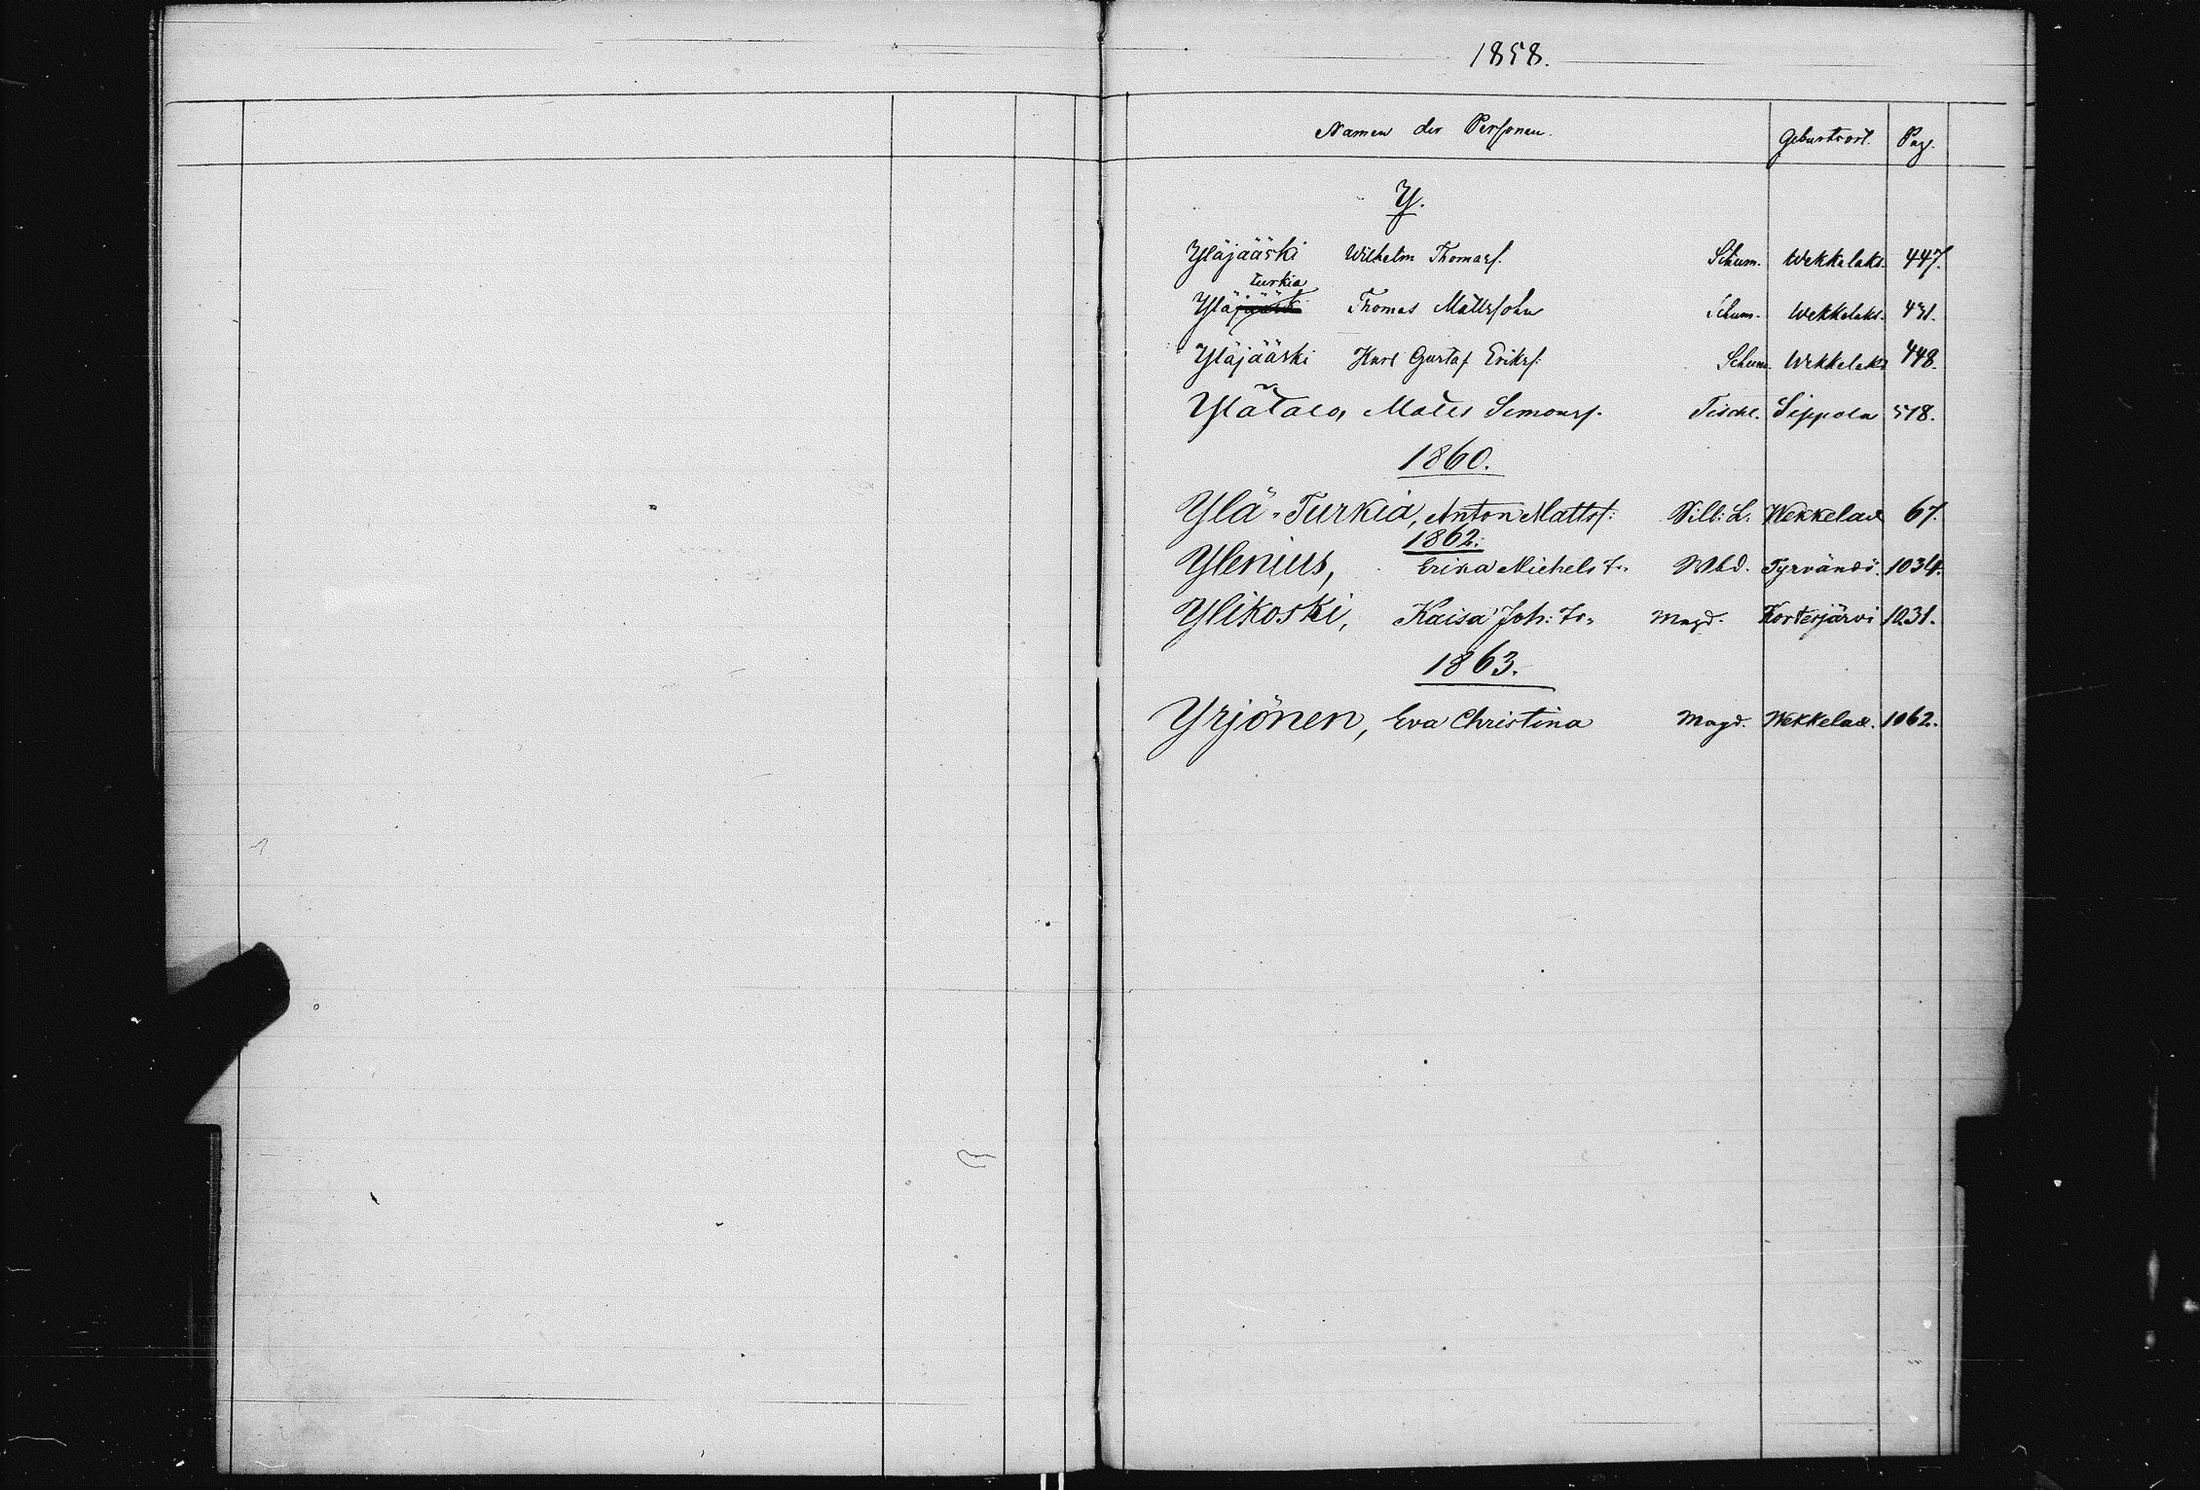 1858.
Namen der Personen. Geburtsort. Pag.
Y.
Yläjääski Wilhelm Thomass. Schum. Wekkelaks. 447.
turkia
Ylä Thomas Mattssohn Schum. Wekkelaks. 431.
Yläjääski Karl Gustaf Eriks. Schum. Wekkelaks 448.
Ylätalo, Matts Simonss. Tischl. Sippola 518.
1860.
Ylä-Turkia, Anton Mattss: Wekkelax 67.
1862.
Ylenius, Erika Michels Tr. Tyrvändö. 1034.
Ylikoski, Kaisa Joh: Tr. Magd. Kortesjärvi 1031.
1863.
Yrjönen, Eva Christina Magd. Wekkelax. 1062.